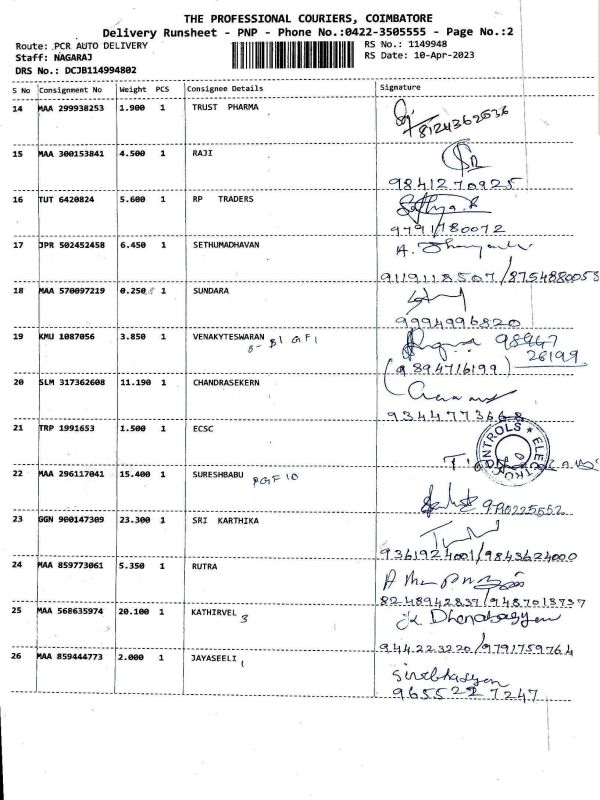 THE PROFESSIONAL COURIERS, COIMBATORE
Delivery Runsheet - PNP - Phone No.:0422-3505555 - Page No.:2
Route: PCR AUTO DELIVERY RS No.: 1149948
Staff: NAGARAJ RS Date: 10-Apr-2023
DRS No.: DCJB114994802
S No Consignment No Weight PCS Consignee Details Signature
14 MAA 299938253 1.900 1 TRUST PHARMA
8124362536
15 MAA 300153841 4.500 1 RAJI
9841270925
16 TUT 6420824 5.600 1 RP TRADERS Sathya.R
9791180072
17 JPR 502452458 6.450 1 SETHUMADHAVAN
9119118507/8754880053
18 MAA 570097219 0.250 1 SUNDARA
9994996820
19 KMU 1087056 3.850 1 VENAKYTESWARAN 98447
B1 GF1 26199
(9894716199)
20 SLM 317362608 11.190 1 CHANDRASEKERN
9344773668
21 TRP 1991653 1.500 1 ECSC
22 MAA 296117041 15.400 1 SURESHBABU PGF10
9790225552
23 GGN 900147309 23.300 1 SRI KARTHIKA
9361924001/9843624000
24 MAA 859773061 5.350 1 RUTRA
8248942837/9487013737
25 MAA 568635974 20.100 1 KATHIRVEL 3
944.223220/9791759764
26 MAA 859444773 2.000 1 JAYASEELI
9655227247